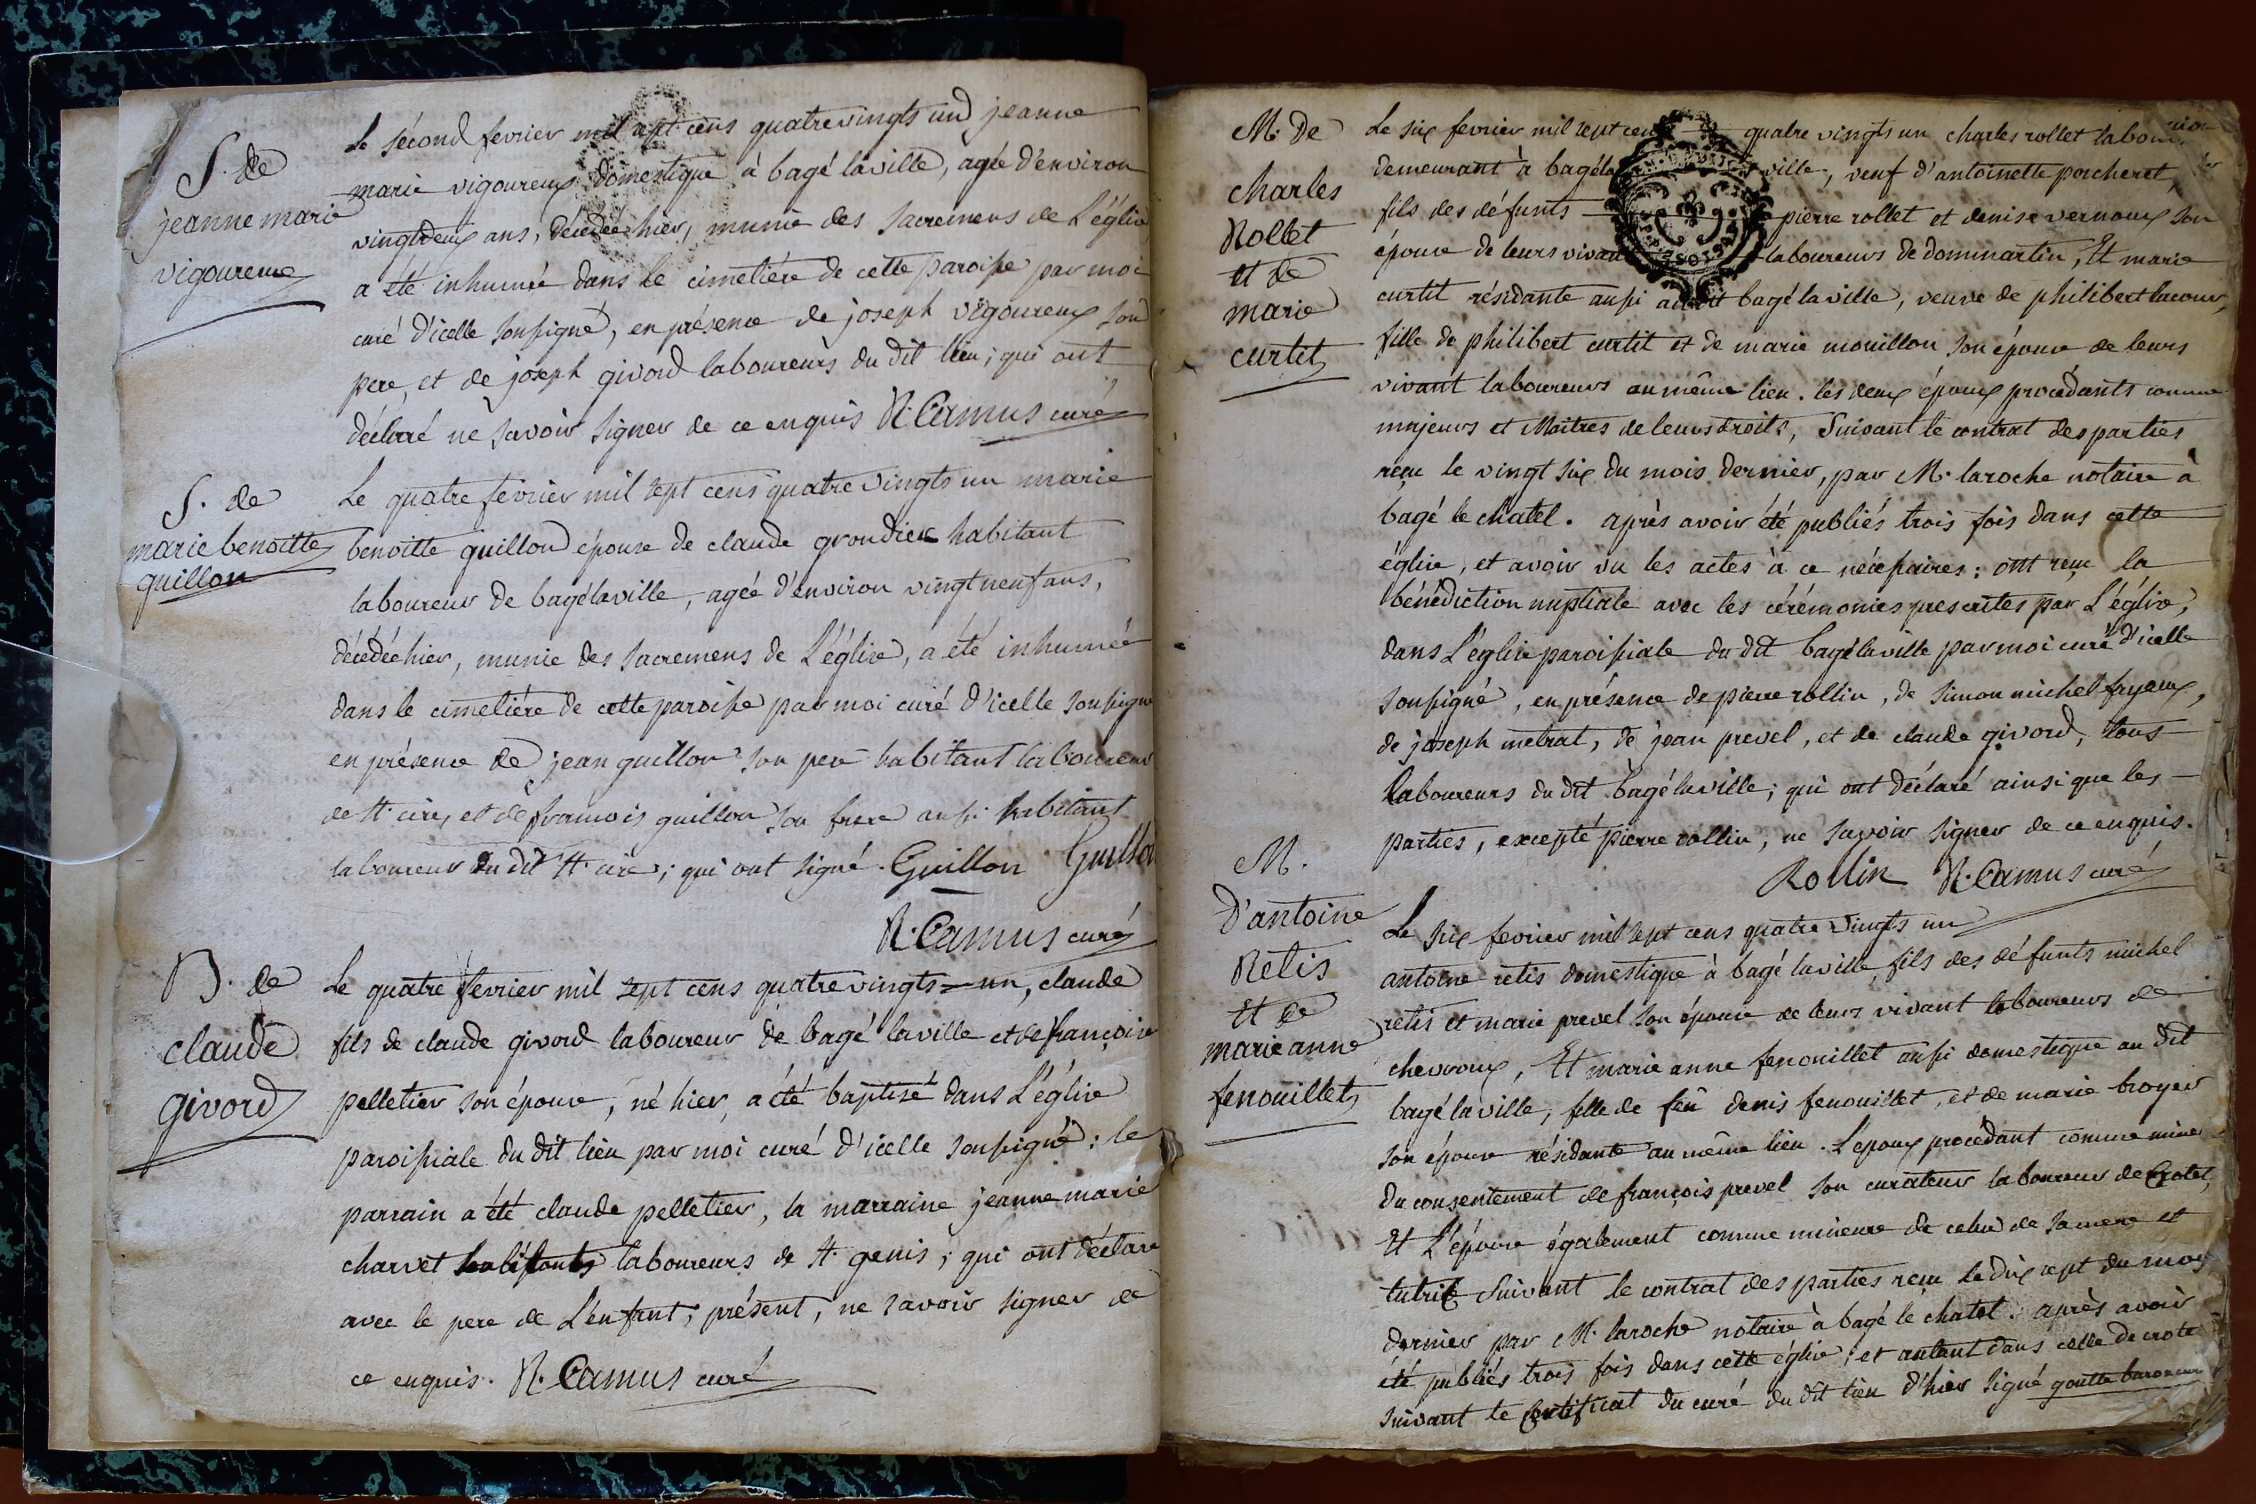 S. de
jeanne marie
vigoureux
Le sécond fevrier mil sept cens quatrevingts un jeanne
marie vigoureux domestique à bagé laville, agée d'environ
vingtdeux ans, décédée hier, munie des sacremens de L'église
a été inhumée dans le cimetiére de cette paroisse par moi
curé d'icelle soussigné, en présence de joseph vigoureux son
pere, et de joseph givord laboureurs du dit lieu; qui ont
déclaré ne savoir signer de ce enquis R. Camus curé
S. de
marie benoitte
guillon
Le quatre fevrier mil sept cens quatre vingts un marie
benoitte guillon épouse de claude grondier habitant
laboureur de bagélaville, agée d'environ vingt neuf ans,
décédée hier, munie des sacremens de L'église, a été inhumée
dans le cimetiére de cette paroisse par moi curé d'icelle soussigné
en présence de jean guillon son pere habitant laboureur
de st. cire, et de francois guillon son frere aussi habitant
laboureur du dit st. cire; qui ont signé. Guillon Guillon
R. Camus curé
B. de
claude
givord
Le quatre fevrier mil sept cens quatrevingts=un, claude
fils de claude givord laboureur de bagé laville et de françoise
pelletier son épouse, né hier, a été baptisé dans L'église
paroissiale du dit lieu par moi curé d'icelle soussigné: le
parrain a été claude pelletier, la marraine jeanne marie
charvet laboureurs de st. genis; qui ont déclaré
avec le pere de L'enfant, présent, ne savoir signer de
ce enquis. R. Camus curé
M. De
charles
Rollet
et de
marie
curtit
Le six fevrier mil sept cens quatre vingts un charles rollet
demeurant à bagéla ville, veuf d'antoinette porcheret,
fils des défunts pierre rollet et denise vernoux son
épouse de leurs vivant laboureurs de dommartin, Et marie
curtit résidante aussi audit bagé laville, veuve de philibert lacour,
fille de philibert curtit et de marie mouillon son épouse de leurs
vivant laboureurs au même lieu. les deux époux procédants comme
majeurs et Maitres de leurs droits, Suivant le contrat des parties
reçu le vingt six du mois dernier, par M. laroche notaire à
bagé le chatel. après avoir été publiés trois fois dans cette
église, et avoir vu les actes à ce nécessaires: ont reçu la
bénédiction nuptiale avec les cérémonies prescrites par L'église,
dans L'église paroissiale du dit bagé laville par moi curé d'icelle
soussigné, en présence de pierre rollin, de simon michel fayoux,
de joseph metrat, de jean prevel, et de claude givord, tous
laboureurs du dit bagé laville; qui ont déclaré ainsi que les
parties, excepté pierre rollin, ne savoir signer de ce enquis.
Rollin R. Camus curé
M.
D'antoine
Retis
Et de
marie anne
fenouillet
Le six fevrier mil sept cens quatre vingts un
antoine retis domestique à bagé laville fils des défunts michel
retis et marie prevel son épouse de leurs vivant laboureurs de
chevroux, Et marie anne fenouillet aussi domestique au dit
bagé laville, fille de feu denis fenouillet, et de marie broyer
son épouse résidante au même lieu. L'époux procédant comme mineur
du consentement de françois prevel son curateur laboureur de Crotet,
Et L'épouse également comme mineure de celui de sa mere et
tutrice suivant le contrat des parties reçu le dix sept du mois
dernier par M. laroche notaire à bagé le chatel. après avoir
été publiés trois fois dans cette église, et autant dans celle de crotet
suivant le certificat du curé du dit lieu d'hier signé goutte